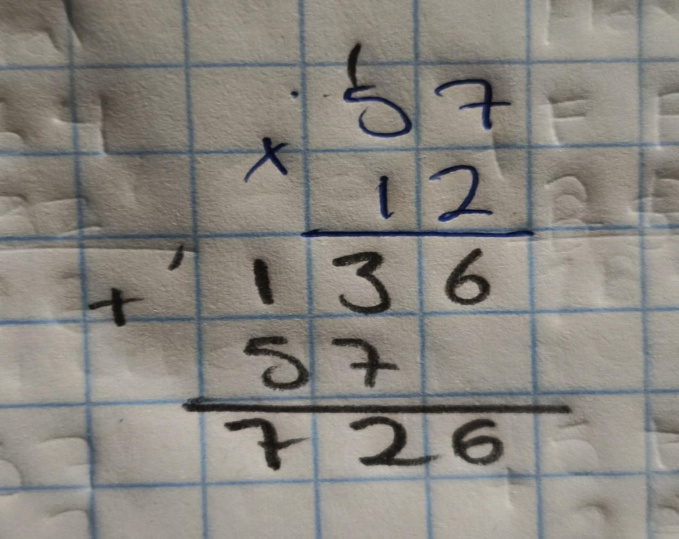 1
57
× 12
+ 136
57
726